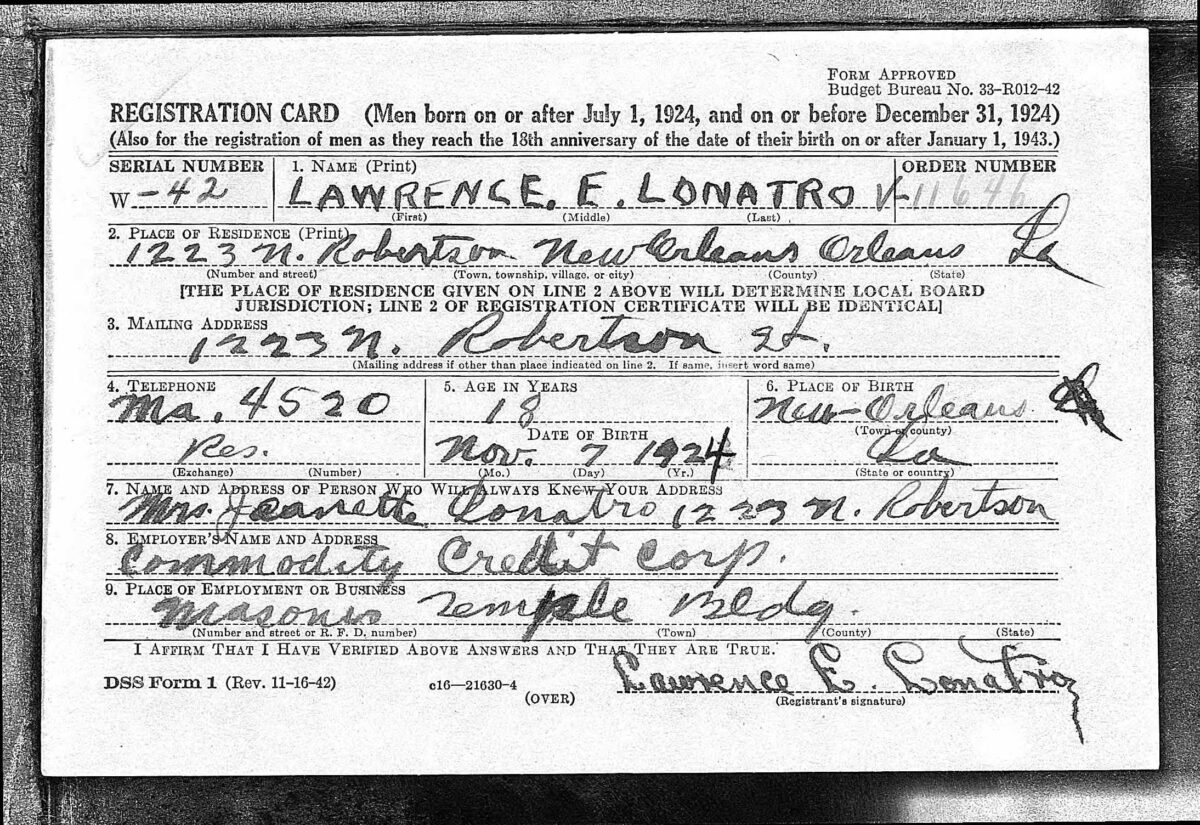 FORM APPROVED
Budget Bureau No. 33-R012-42
REGISTRATION CARD (Men born on or after July 1, 1924, and on or before December 31, 1924)
(Also for the registration of men as they reach the 18th anniversary of the date of their birth on or after January 1, 1943.)
SERIAL NUMBER 1. NAME (Print) ORDER NUMBER
W -42 LAWRENCE. E. LONATRO 11646
(First) (Middle) (Last)
2. PLACE OF RESIDENCE (Print)
1223 N. Robertson New Orleans Orleans La
(Number and street) (Town, township, village, or city) (County) (State)
[THE PLACE OF RESIDENCE GIVEN ON LINE 2 ABOVE WILL DETERMINE LOCAL BOARD
JURISDICTION; LINE 2 OF REGISTRATION CERTIFICATE WILL BE IDENTICAL]
3. MAILING ADDRESS
1223 N. Robertson St.
(Mailing address if other than place indicated on line 2. If same, insert word same)
4. TELEPHONE 5. AGE IN YEARS 6. PLACE OF BIRTH
Ma. 4520 18 New Orleans
DATE OF BIRTH (Town or county)
Res. Nov. 7 1924 La
(Exchange) (Number) (Mo.) (Day) (Yr.) (State or country)
7. NAME AND ADDRESS OF PERSON WHO WILL ALWAYS KNOW YOUR ADDRESS
Mrs. Jeanette Lonatro 1223 N. Robertson
8. EMPLOYER'S NAME AND ADDRESS
Commodity Credit Corp.
9. PLACE OF EMPLOYMENT OR BUSINESS
Masonic Temple Bldg.
(Number and street or R. F. D. number) (Town) (County) (State)
I AFFIRM THAT I HAVE VERIFIED ABOVE ANSWERS AND THAT THEY ARE TRUE.
Lawrence E. Lonatro
DSS Form 1 (Rev. 11-16-42) c16—21630-4
(OVER) (Registrant's signature)